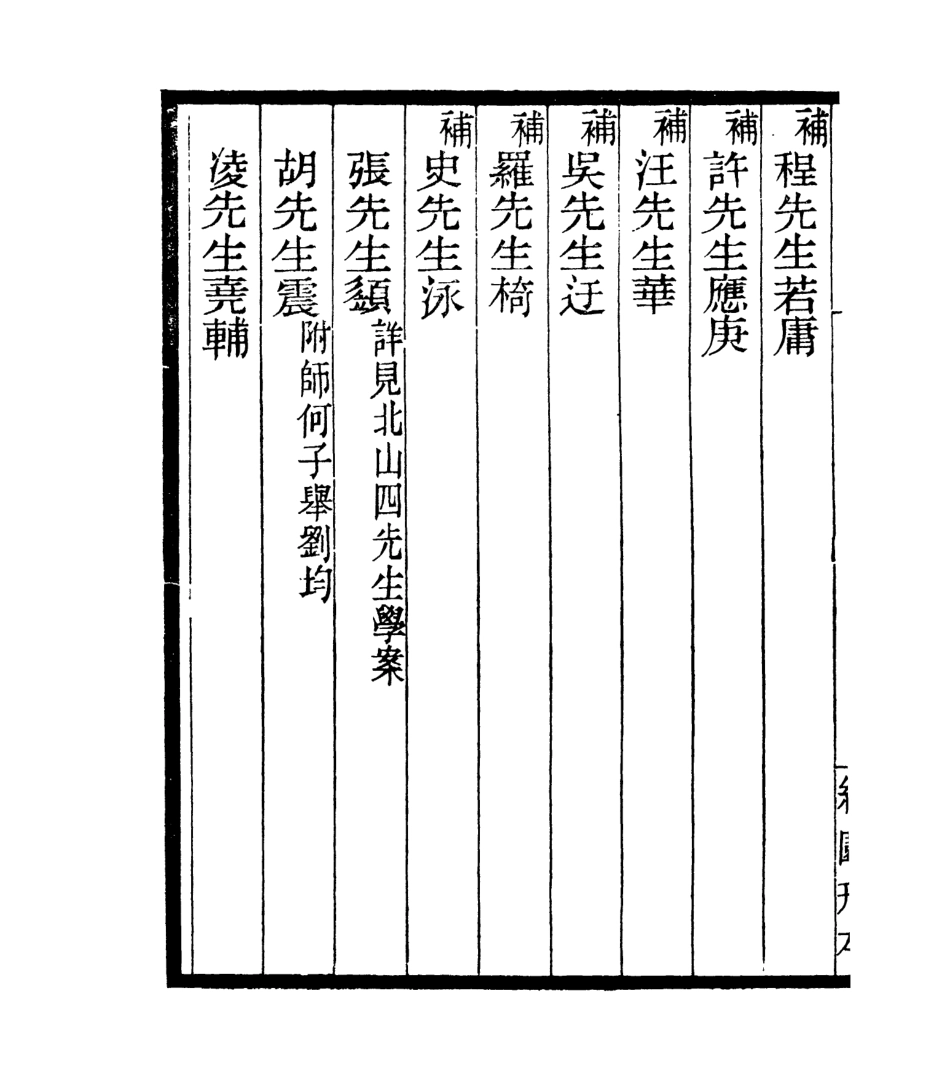 補程先生若庸
補許先生應庚
補汪先生華
補吳先生迂
補羅先生椅
補史先生泳
張先生𩓐詳見北山四先生學案
胡先生震附師何子舉劉均
凌先生堯輔